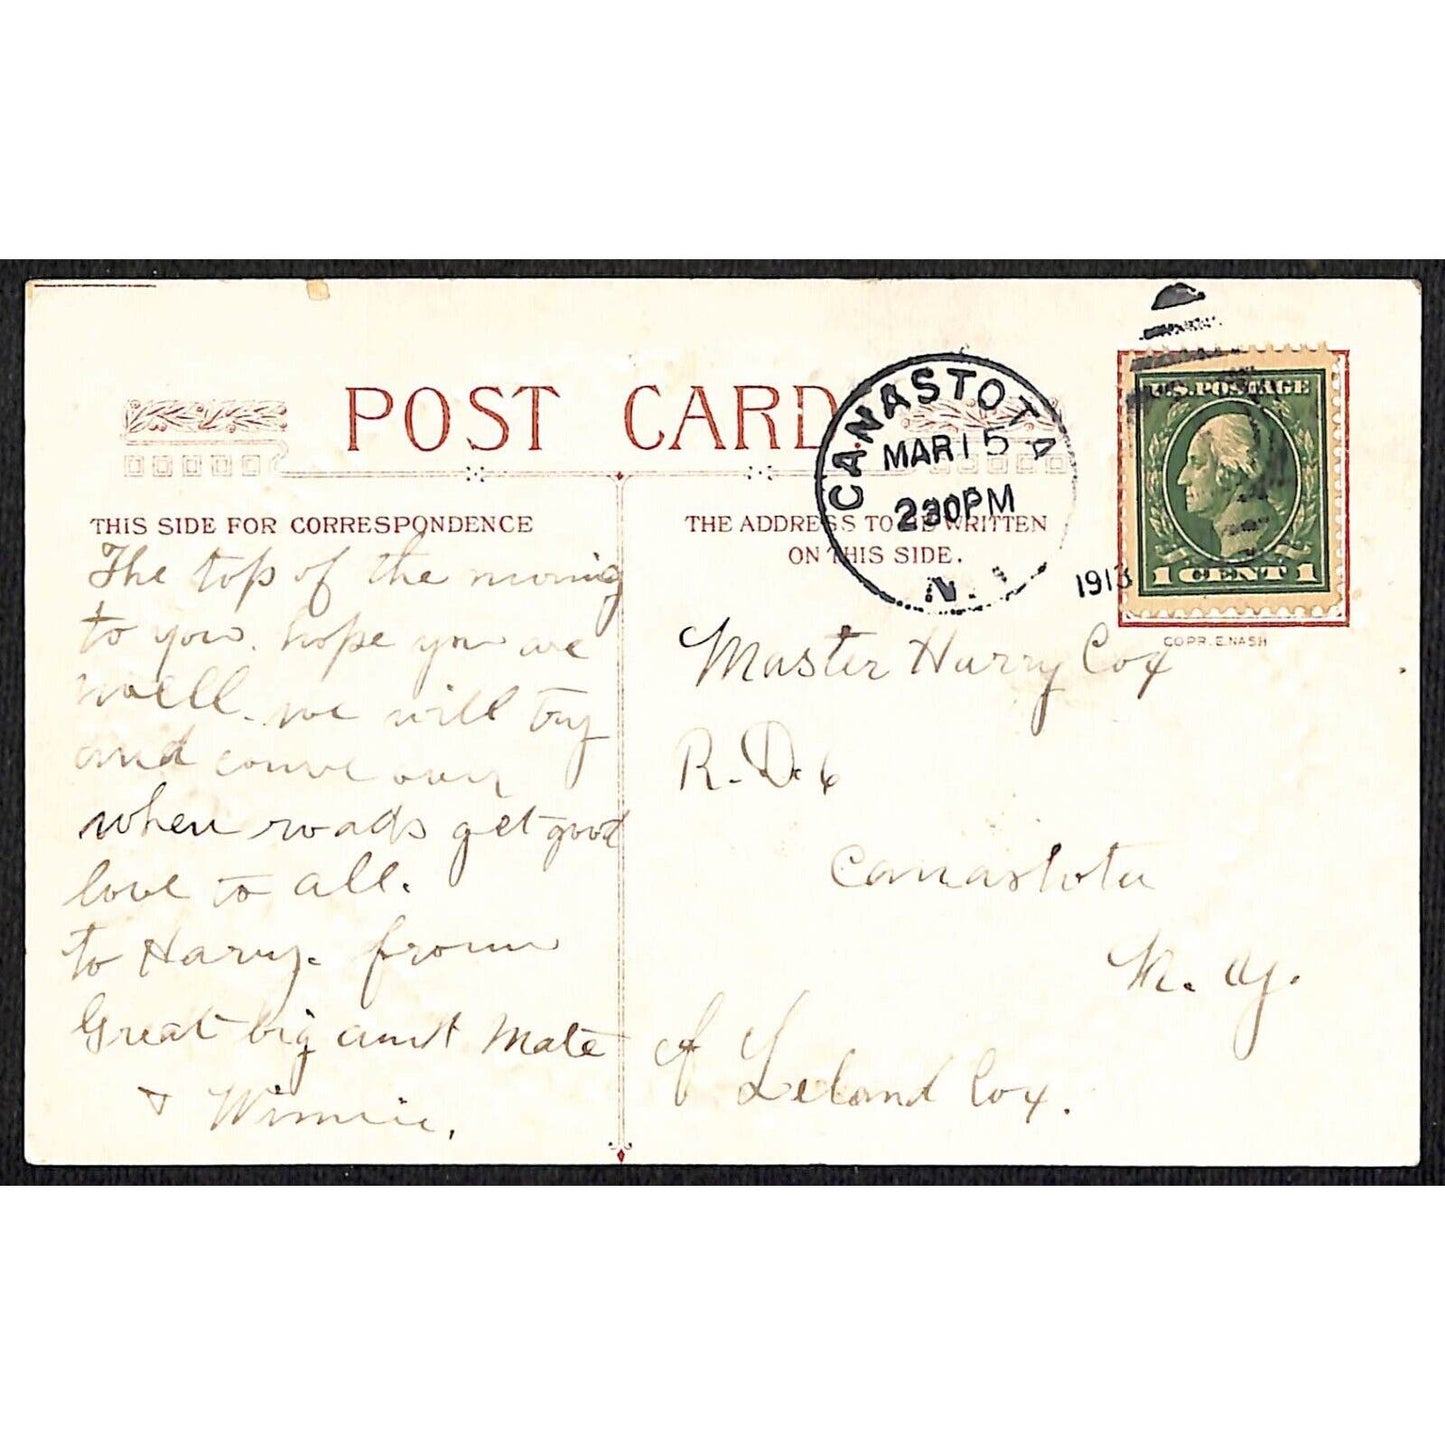 POST CARD
THIS SIDE FOR CORRESPONDENCE
The top of the morning
to you. hope you are
well. we will try
and come over
when roads get good
love to all.
to Harry. from
Great big aunt Mate
& Winnie.
THE ADDRESS TO BE WRITTEN
ON THIS SIDE.
CANASTOTA
MAR 15
230PM
N.
1913
U.S. POSTAGE
1 CENT 1
COPR. E. NASH
Master Harry Cox
R. D. 6
Canastota
N. Y.
Leland Cox.